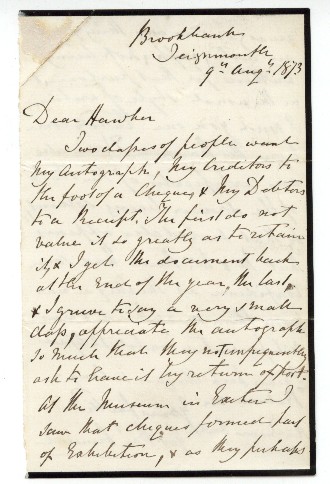 Brookbank
Teignmouth
9th Augt 1873
Dear Hawker
Two classes of people want
my autograph, my Creditors to
the foot of a Cheque, & my Debtors
to a Receipt. The first do not
value it so greatly as to retain
it, & I get the document back
at the end of the year, the last,
& I grieve to say a very small
class, appreciate the autograph
so much that they not unfrequently
ask to have it by return of post.
At the Museum in Exeter I
saw that cheques formed part
of Exhibition, & as they perhaps